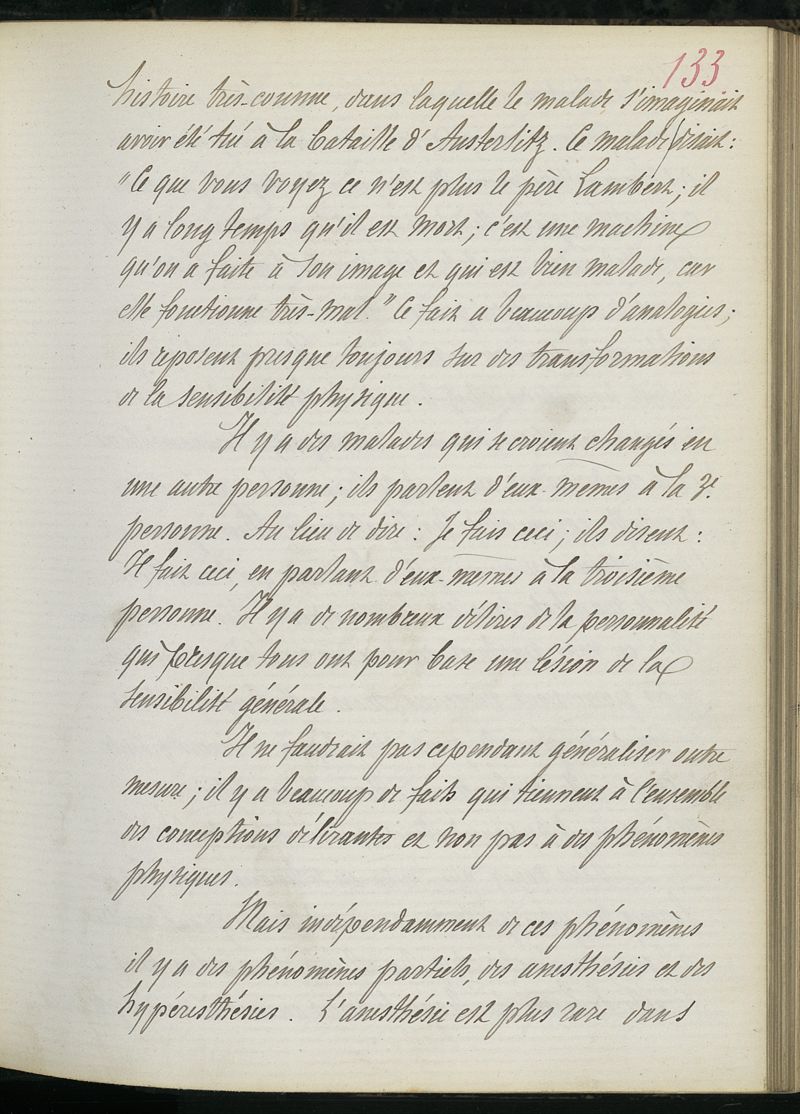 133
histoire très-connue, dans laquelle le malade s'imaginait
avoir été tué à la bataille d'Austerlitz. Ce malade disait :
"Ce que vous voyez ce n'est plus le père Lambert ; il
y a long temps qu'il est mort ; c'est une machine
qu'on a faite à son image et qui est bien malade, car
elle fonctionne très-mal." Ce fait a beaucoup d'analogies ;
ils reposent presque toujours sur des transformations
de la sensibilité physique.
Il y a des malades qui se croient changés en
une autre personne ; ils parlent d'eux-mêmes à la 3e.
personne. Au lieu de dire : Je fais ceci ; ils disent :
Il fait ceci, en parlant d'eux-mêmes à la troisième
personne. Il y a de nombreux délires de la personnalité
qui presque tous ont pour base une lésion de la
sensibilité générale.
Il ne faudrait pas cependant généraliser outre
mesure ; il y a beaucoup de faits qui tiennent à l'ensemble
des conceptions délirantes et non pas à des phénomènes
physiques.
Mais indépendamment de ces phénomènes
il y a des phénomènes partiels, des anesthésies et des
hypéresthésies. L'anesthésie est plus rare dans